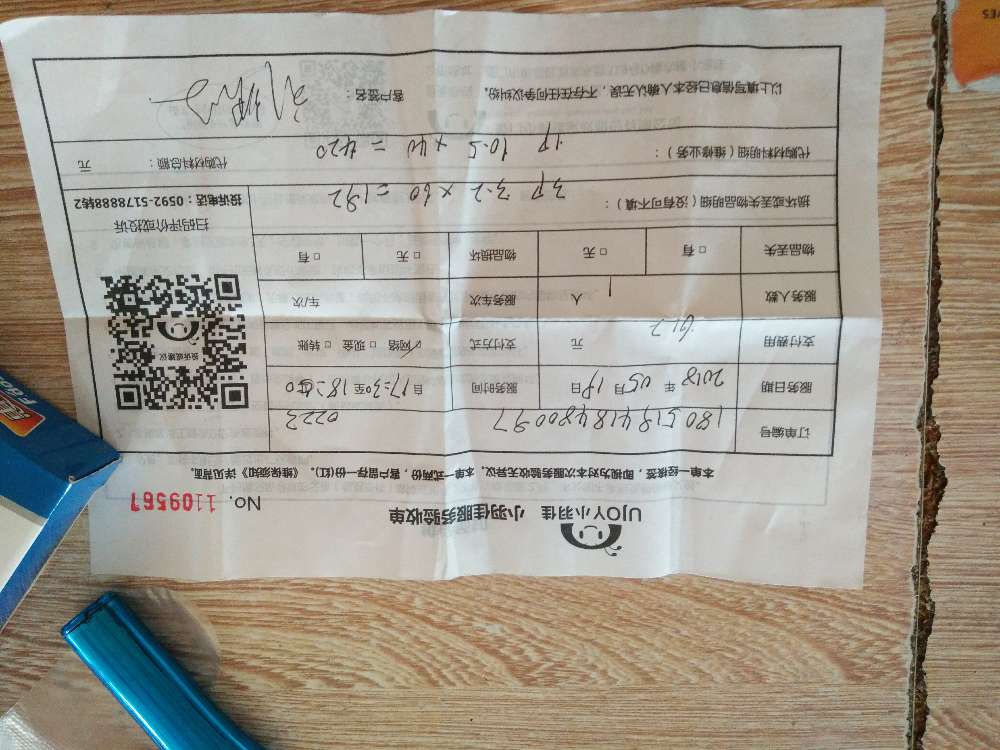 UJOY小羽佳 小羽佳服务验收单
No. 1109567
本单一经核签，即视为对本次服务验收无异议，本单一式两份，客户留存一份(红)。《维保须知》详见背面。
订单编号 0223
服务日期 2018 年 05 月 19 日 服务时间 自 17:30 至
支付费用 612 元 支付方式 网络 现金 转账
服务人数 1 人 服务车次 车/次
物品丢失 有 无 物品损坏 无 有
投诉或建议
扫码评价或投诉
投诉电话：0592-5178888转2
损坏或丢失物品明细（没有可不填）： 3P 3.2 × 60 = 192
代购材料明细（维修业务）： 1P 10.5 × 40 = 420 代购材料总额： 元
以上填写信息已经本人确认无误，不存在任何争议纠纷。 客户签名：